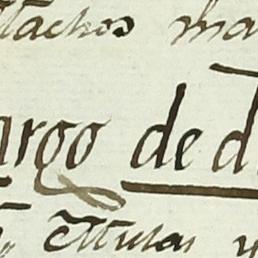 tachos ma
argo de d
Mulas y